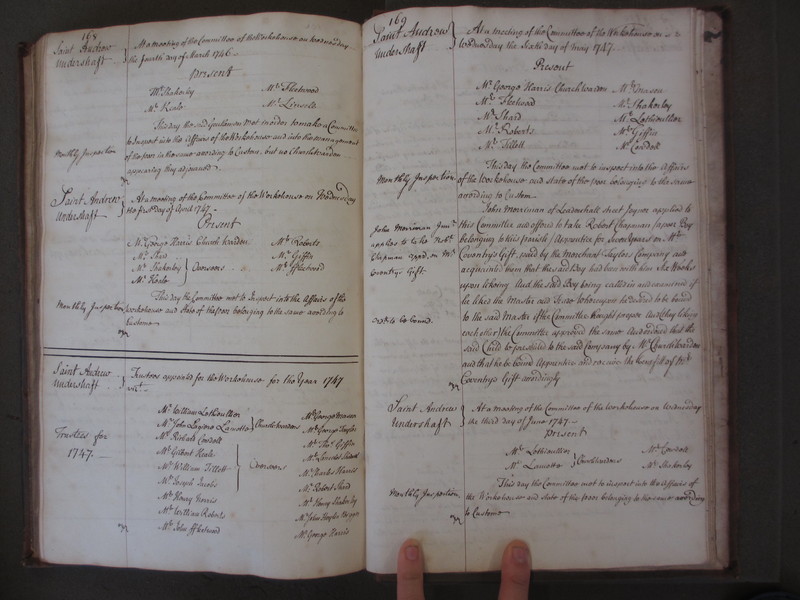 168
Saint Andrew Undershaft } At a meeting of the Committee of the Workhouse on Wednesday
the fourth day of March 1746
Present
Mr. Shakerley Mr. Fleetwood
Mr. Keale
This day the said Gentlemen met in order to make a Committee
to Inspect into the Affairs of the Workhouse and into the management
Monthly Inspection of the poor in the same according to Custom, but no Churchwarden
appearing they adjourned
Saint Andrew Undershaft } At a meeting of the Committee of the Workhouse on Wednesday
the first day of April 1747
Present
Mr. George Harris Church warden Mr. Roberts
Mr. Giffin
Mr. Shakerley } Overseers Mr. Ffleetwood
Mr. Keale
This day the Committee met to Inspect into the Affairs of the
Monthly Inspection Workhouse and State of the poor belonging to the same according to
Custom
Saint Andrew Undershaft } Trustees appointed for the Workhouse for the Year 1747
vizt.
Trustees for 1747.
Mr. William Lethieullier Mr. George Mason
Mr. John Lamotte } Churchwardens Mr. George Sharples
Mr. Richard Cowdell Mr. Thos. Giffin
Mr. Gilbert Keale
Mr. William Tillett } Overseers Mr. Charles
Mr. Joseph Mr. Robert Shard
Mr. Henry Mr. Henry Shakerley
Mr. William Roberts Mr. John
Mr. John Ffleetwood Mr. George Harris
169
Saint Andrew Undershaft } At a meeting of the Committee of the Workhouse on
Wednesday the Sixth day of May 1747
Present
Mr. George Harris Churchwarden Mr. Mason
Mr. Fleetwood Mr. Shakerley
Mr. Shard Mr. Lethieullier
Mr. Roberts Mr. Giffin
Mr. Tillett Mr. Cowdell
This day the Committee met to inspect into the Affairs
Monthly Inspection of the Workhouse and state of the poor belonging to the same
according to Custom
John Merriman of Leadenhall street Joyner applied to
John Merriman Junr. this Committee and offered to take Robert Chapman (a poor Boy
applies to take Robt. belonging to this parish) Apprentice for Seven Years on Mr.
Chapman appd. on Mr. Coventry's Gift, paid by the Merchant Taylors Company and
Coventrys Gift. acquainted them that the said Boy had been with him six Weeks
upon likeing And the said Boy being called in and examined if
he likes the Master and whereupon he desired to be bound
and to be bound. to the said Master if the Committee thought proper And they likeing
each other the Committee approved the same And ordered that the
said Child be presented to the said Company by Mr. Churchwarden
and that he be bound Apprentice and receive the benefit of Mr.
Coventry's Gift accordingly
Saint Andrew Undershaft } At a meeting of the Committee of the Workhouse on Wednesday
the third day of June 1747
Present
Mr. Lethieullier } Churchwardens Mr. Cowdell
Mr. Lamotte Mr. Shakerley
This day the Committee met to inspect into the Affairs of
Monthly Inspection the Workhouse and state of the poor belonging to the same according
to Custom